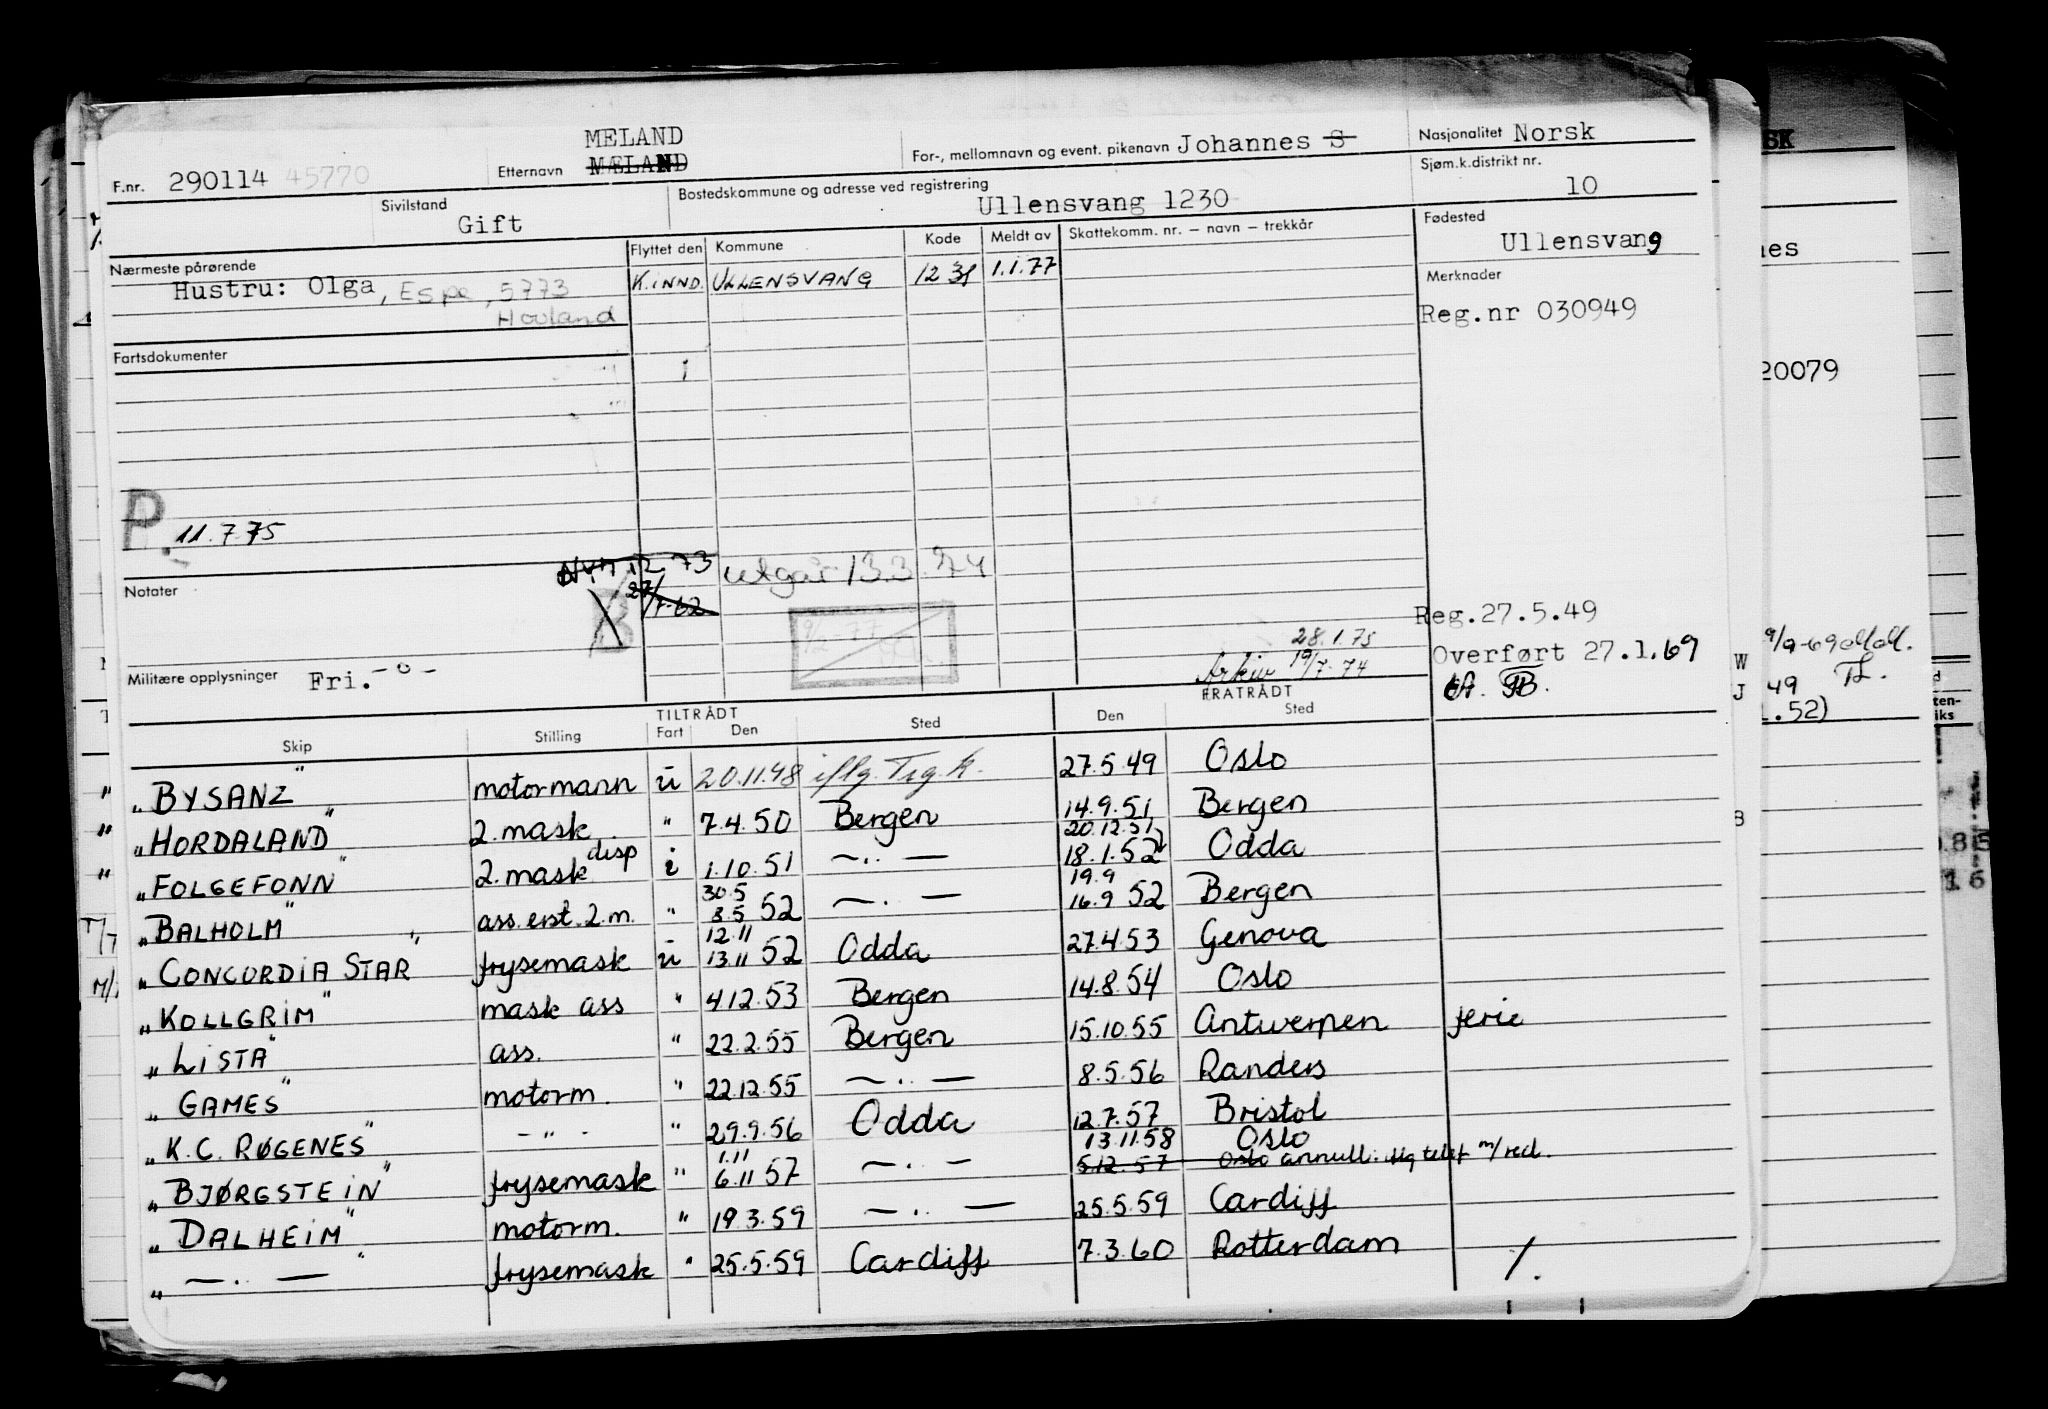 F.nr. 290114 45770
Etternavn MELAND
MÆLAND
For-, mellomnavn og event. pikenavn Johannes S
Nasjonalitet Norsk
Sjøm.k.distrikt nr. 10
Sivilstand Gift
Bostedskommune og adresse ved registrering Ullensvang 1230
Nærmeste pårørende
Hustru: Olga, Espe, 5773
Hovland
Flyttet den Kommune Kode Meldt av Skattekomm. nr. – navn – trekkår
K.INND. ULLENSVANG 1231 1.1.77
Fødested
Ullensvang
Merknader
Reg.nr 030949
Fartsdokumenter
P. 11.7.75
12 73
utgår 13.3.74
27/7-62
9/2-77
Notater
B
Reg.27.5.49
28.1.75
Arkiv 19/7-74
Overført 27.1.69
Militære opplysninger Fri. -o-
TILTRÅDT FRATRÅDT
Skip Stilling Fart Den Sted Den Sted
"BYSANZ" motormann u 20.11.48 iflg. Trg.k. 27.5.49 Oslo
"HORDALAND" 2.mask. " 7.4.50 Bergen 14.9.51 Bergen
20.12.51
"FOLGEFONN" 2.mask disp i 1.10.51 —..— 18.1.52 Odda
30.5 19.9
"BALHOLM" ass. erst. 2.m. " 3.5 52 —..— 16.9 52 Bergen
12.11
"CONCORDIA STAR" frysemask u 13.11 52 Odda 27.4.53 Genova
"KOLLGRIM" mask ass " 4.12.53 Bergen 14.8.54 Oslo
"LISTA" ass. " 22.2.55 Bergen 15.10.55 Antwerpen ferie
"GAMES" motorm. " 22.12.55 —..— 8.5.56 Randers
"K.C. RØGENES" -"- " 29.9.56 Odda 12.7.57 Bristol
1.11 13.11.58 Oslo
"BJØRGSTEIN" frysemask " 6.11 57 —..— 5.12.57 Oslo annull. iflg telef m/red.
"DALHEIM" motorm. " 19.3.59 —..— 25.5.59 Cardiff
"—..—" frysemask " 25.5.59 Cardiff 7.3.60 Rotterdam /.
SK
nes
20079
9/9-69
W
J
49
1.52)